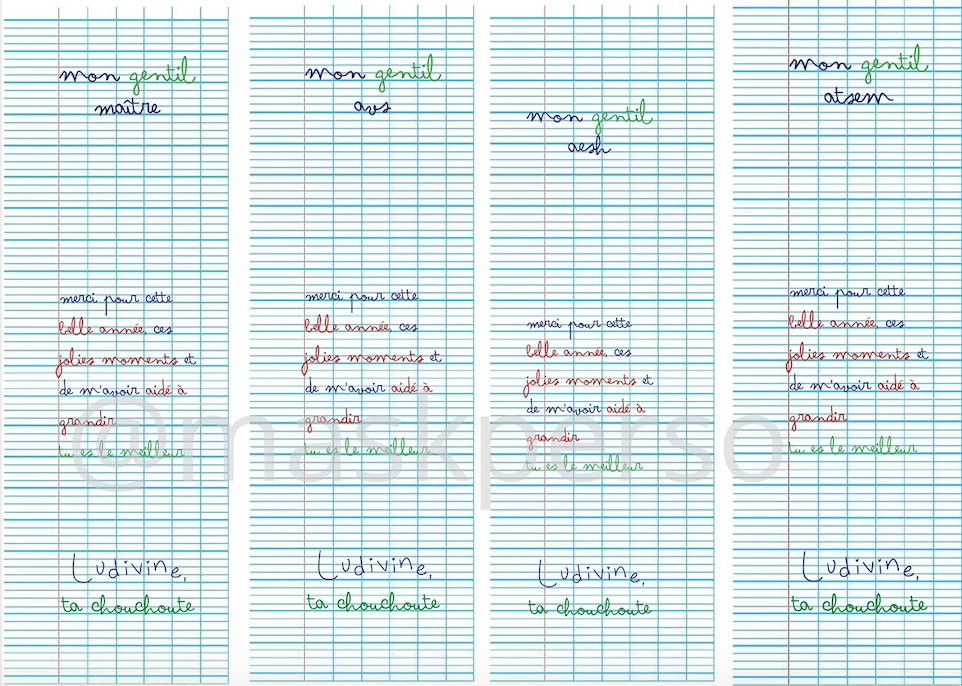 mon gentil
maître
merci pour cette
belle année, ces
jolies moments et
de m'avoir aidé à
grandir
tu es le meilleur
Ludivine,
ta chouchoute
mon gentil
avs
merci pour cette
belle année, ces
jolies moments et
de m'avoir aidé à
grandir
tu es le meilleur
Ludivine,
ta chouchoute
mon gentil
aesh
merci pour cette
belle année, ces
jolies moments et
de m'avoir aidé à
grandir
tu es le meilleur
Ludivine,
ta chouchoute
mon gentil
atsem
merci pour cette
belle année, ces
jolies moments et
de m'avoir aidé à
grandir
tu es le meilleur
Ludivine,
ta chouchoute
@maskperso